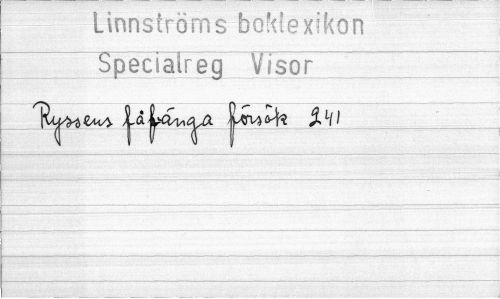 Linnströms boklexikon
Specialreg Visor
Ryssens fåfänga försök 241